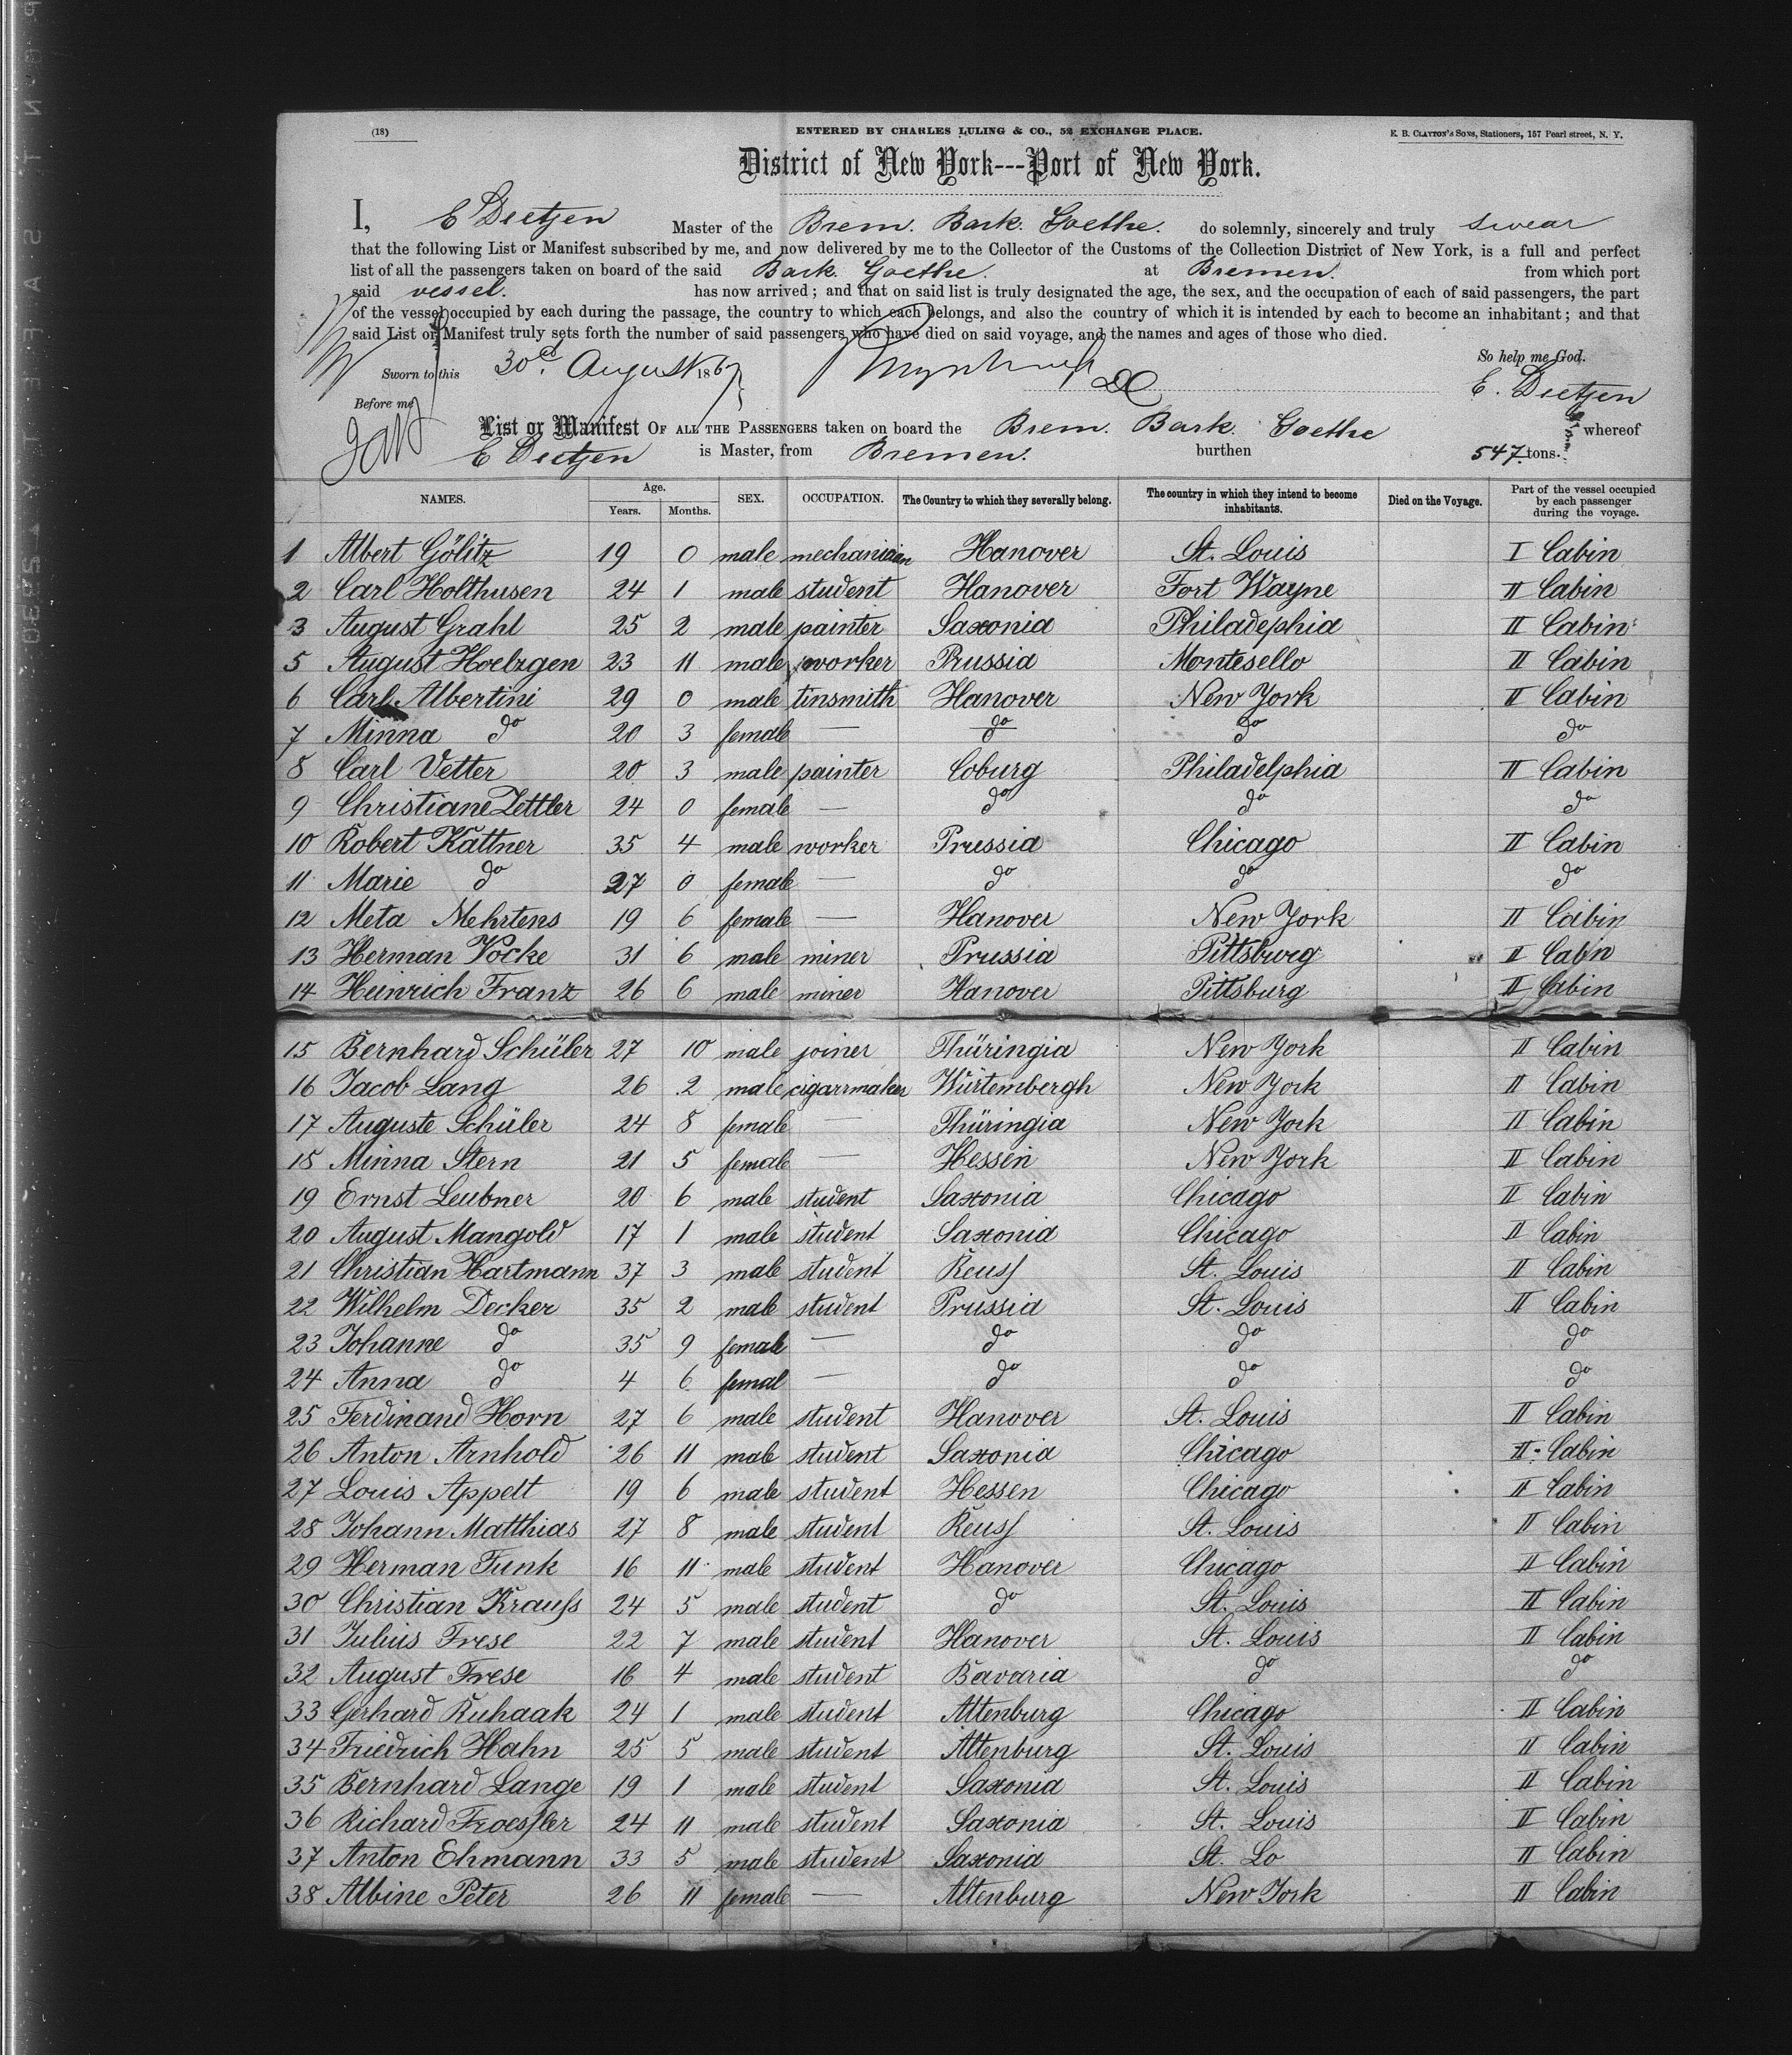 (18)
ENTERED BY CHARLES LULING & CO., 52 EXCHANGE PLACE.
E. B. CLAYTON'S SONS, Stationers, 157 Pearl street, N. Y.
District of New York---Port of New York.
I, E Dietjen Master of the Brem. Bark. Goethe. do solemnly, sincerely and truly swear
that the following List or Manifest subscribed by me, and now delivered by me to the Collector of the Customs of the Collection District of New York, is a full and perfect
list of all the passengers taken on board of the said Bark. Goethe. at Bremen. from which port
said vessel. has now arrived; and that on said list is truly designated the age, the sex, and the occupation of each of said passengers, the part
of the vessel occupied by each during the passage, the country to which each belongs, and also the country of which it is intended by each to become an inhabitant; and that
said List or Manifest truly sets forth the number of said passengers who have died on said voyage, and the names and ages of those who died.
So help me God.
Sworn to this 30d. August 1867
E. Dietjen
Before me
List or Manifest OF ALL THE PASSENGERS taken on board the Brem. Bark. Goethe whereof
E Dietjen is Master, from Bremen. burthen 547. tons.
NAMES. Age. Years. Months. SEX. OCCUPATION. The Country to which they severally belong. The country in which they intend to become inhabitants. Died on the Voyage. Part of the vessel occupied by each passenger during the voyage.
1 Albert Gölitz 19 0 male mechanician Hanover St. Louis I Cabin
2 Carl Holthusen 24 1 male student Hanover Fort Wayne II Cabin
3 August Grahl 25 2 male painter Saxonia Philadephia II Cabin
5 August Hoelzgen 23 11 male worker Prussia Montesello II Cabin
6 Carl Albertini 29 0 male tinsmith Hanover New York II Cabin
7 Minna do 20 3 female — do do do
8 Carl Vetter 20 3 male painter Coburg Philadelphia II Cabin
9 Christiane Zettler 24 0 female — do do do
10 Robert Kattner 35 4 male worker Prussia Chicago II Cabin
11 Marie do 27 0 female — do do do
12 Meta Mehrtens 19 6 female — Hanover New York II Cabin
13 Herman Vocke 31 6 male miner Prussia Pittsburg II Cabin
14 Heinrich Franz 26 6 male miner Hanover Pittsburg II Cabin
15 Bernhard Schüler 27 10 male joiner Thüringia New York II Cabin
16 Jacob Lang 26 2 male cigarrmaker Würtembergh New York II Cabin
17 Auguste Schüler 24 8 female — Thüringia New York II Cabin
18 Minna Stern 21 5 female — Hessen New York II Cabin
19 Ernst Leubner 20 6 male student Saxonia Chicago II Cabin
20 August Mangold 17 1 male student Saxonia Chicago II Cabin
21 Christian Hartmann 37 3 male student Reuss St. Louis II Cabin
22 Wilhelm Decker 35 2 male student Prussia St. Louis II Cabin
23 Johanne do 35 9 female — do do do
24 Anna do 4 6 femal — do do do
25 Ferdinand Horn 27 6 male student Hanover St. Louis II Cabin
26 Anton Arnhold 26 11 male student Saxonia Chicago II Cabin
27 Louis Appelt 19 6 male student Hessen Chicago II Cabin
28 Johann Matthias 27 8 male student Reuss St. Louis II Cabin
29 Herman Funk 16 11 male student Hanover Chicago II Cabin
30 Christian Krauss 24 5 male student do St. Louis II Cabin
31 Julius Frese 22 7 male student Hanover St. Louis II Cabin
32 August Frese 16 4 male student Bavaria do do
33 Gerhard Ruhaak 24 1 male student Altenburg Chicago II Cabin
34 Friedrich Hahn 25 5 male student Altenburg St. Louis II Cabin
35 Bernhard Lange 19 1 male student Saxonia St. Louis II Cabin
36 Richard Froessler 24 11 male student Saxonia St. Louis II Cabin
37 Anton Ehmann 33 5 male student Saxonia St. Lo II Cabin
38 Albine Peter 26 11 female — Altenburg New York II Cabin